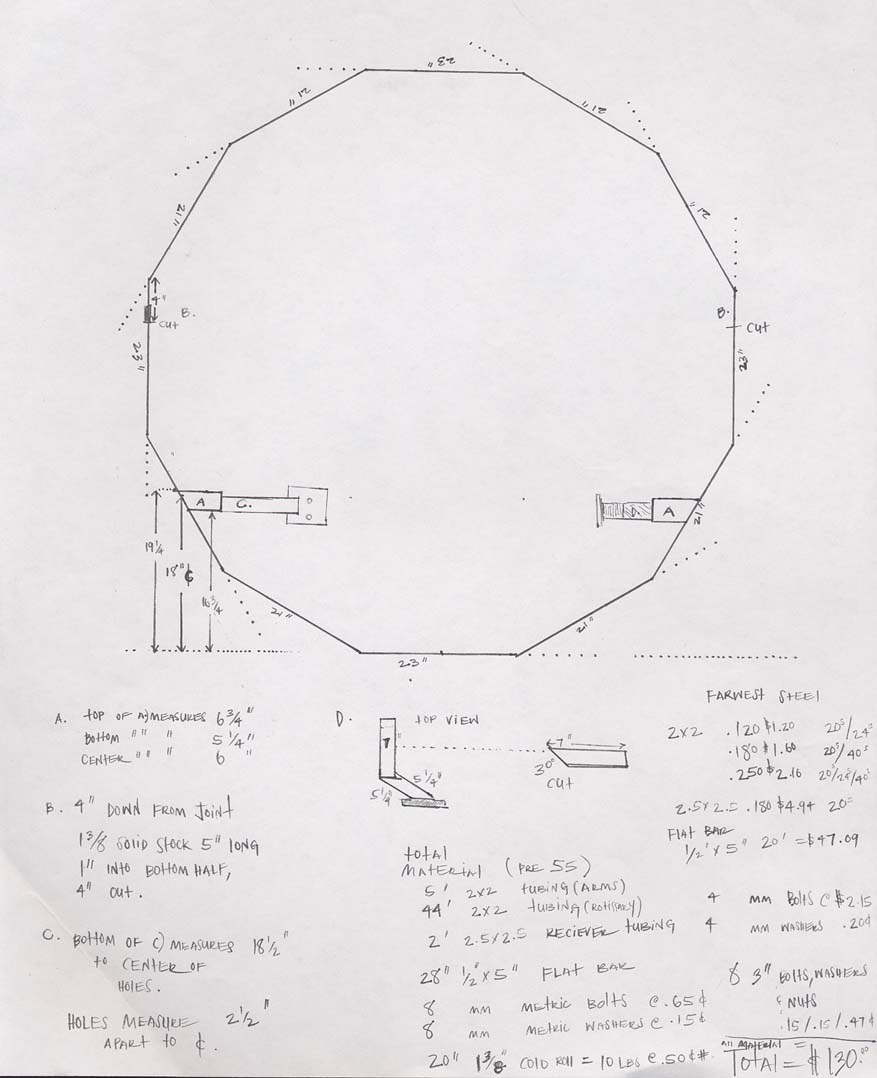 23"
21"
21"
21"
21"
4"
B.
CUT
B.
CUT
23"
23"
A
C.
D.
A
21"
19 1/4
18" ¢
16 3/4
21"
21"
23"
FARWEST STEEL
2X2 .120 $1.20 20S/24S
.180 $1.60 20S/40S
.250 $2.16 20S/24S/40S
2.5X2.5 .180 $4.94 20S
FLAT BAR
1/2" X 5" 20' = $47.09
A. TOP OF A) MEASURES 6 3/4"
BOTTOM " " " 5 1/4"
CENTER " " " 6"
B. 4" DOWN FROM JOINT
1 3/8 SOLID STOCK 5" LONG
1" INTO BOTTOM HALF,
4" OUT.
C. BOTTOM OF C) MEASURES 18 1/2"
TO CENTER OF
HOLES.
HOLES MEASURE 2 1/2"
APART TO ¢.
D. TOP VIEW
7"
5 1/4"
5 1/4"
7"
30°
CUT
TOTAL
MATERIAL (PRE 55)
5' 2X2 TUBING (ARMS)
44' 2X2 TUBING (ROTISSARY)
2' 2.5X2.5 RECIEVER TUBING
28" 1/2" X 5" FLAT BAR
8 MM METRIC BOLTS @ .65¢
8 MM METRIC WASHERS @ .15¢
20" 1 3/8" COLD ROLL = 10 LBS @ .50¢ #.
4 MM BOLTS @ $2.15
4 MM WASHERS .20¢
8 3" BOLTS, WASHERS
& NUTS
.15/.15/.47¢
ALL MATERIAL =
TOTAL = $130.00